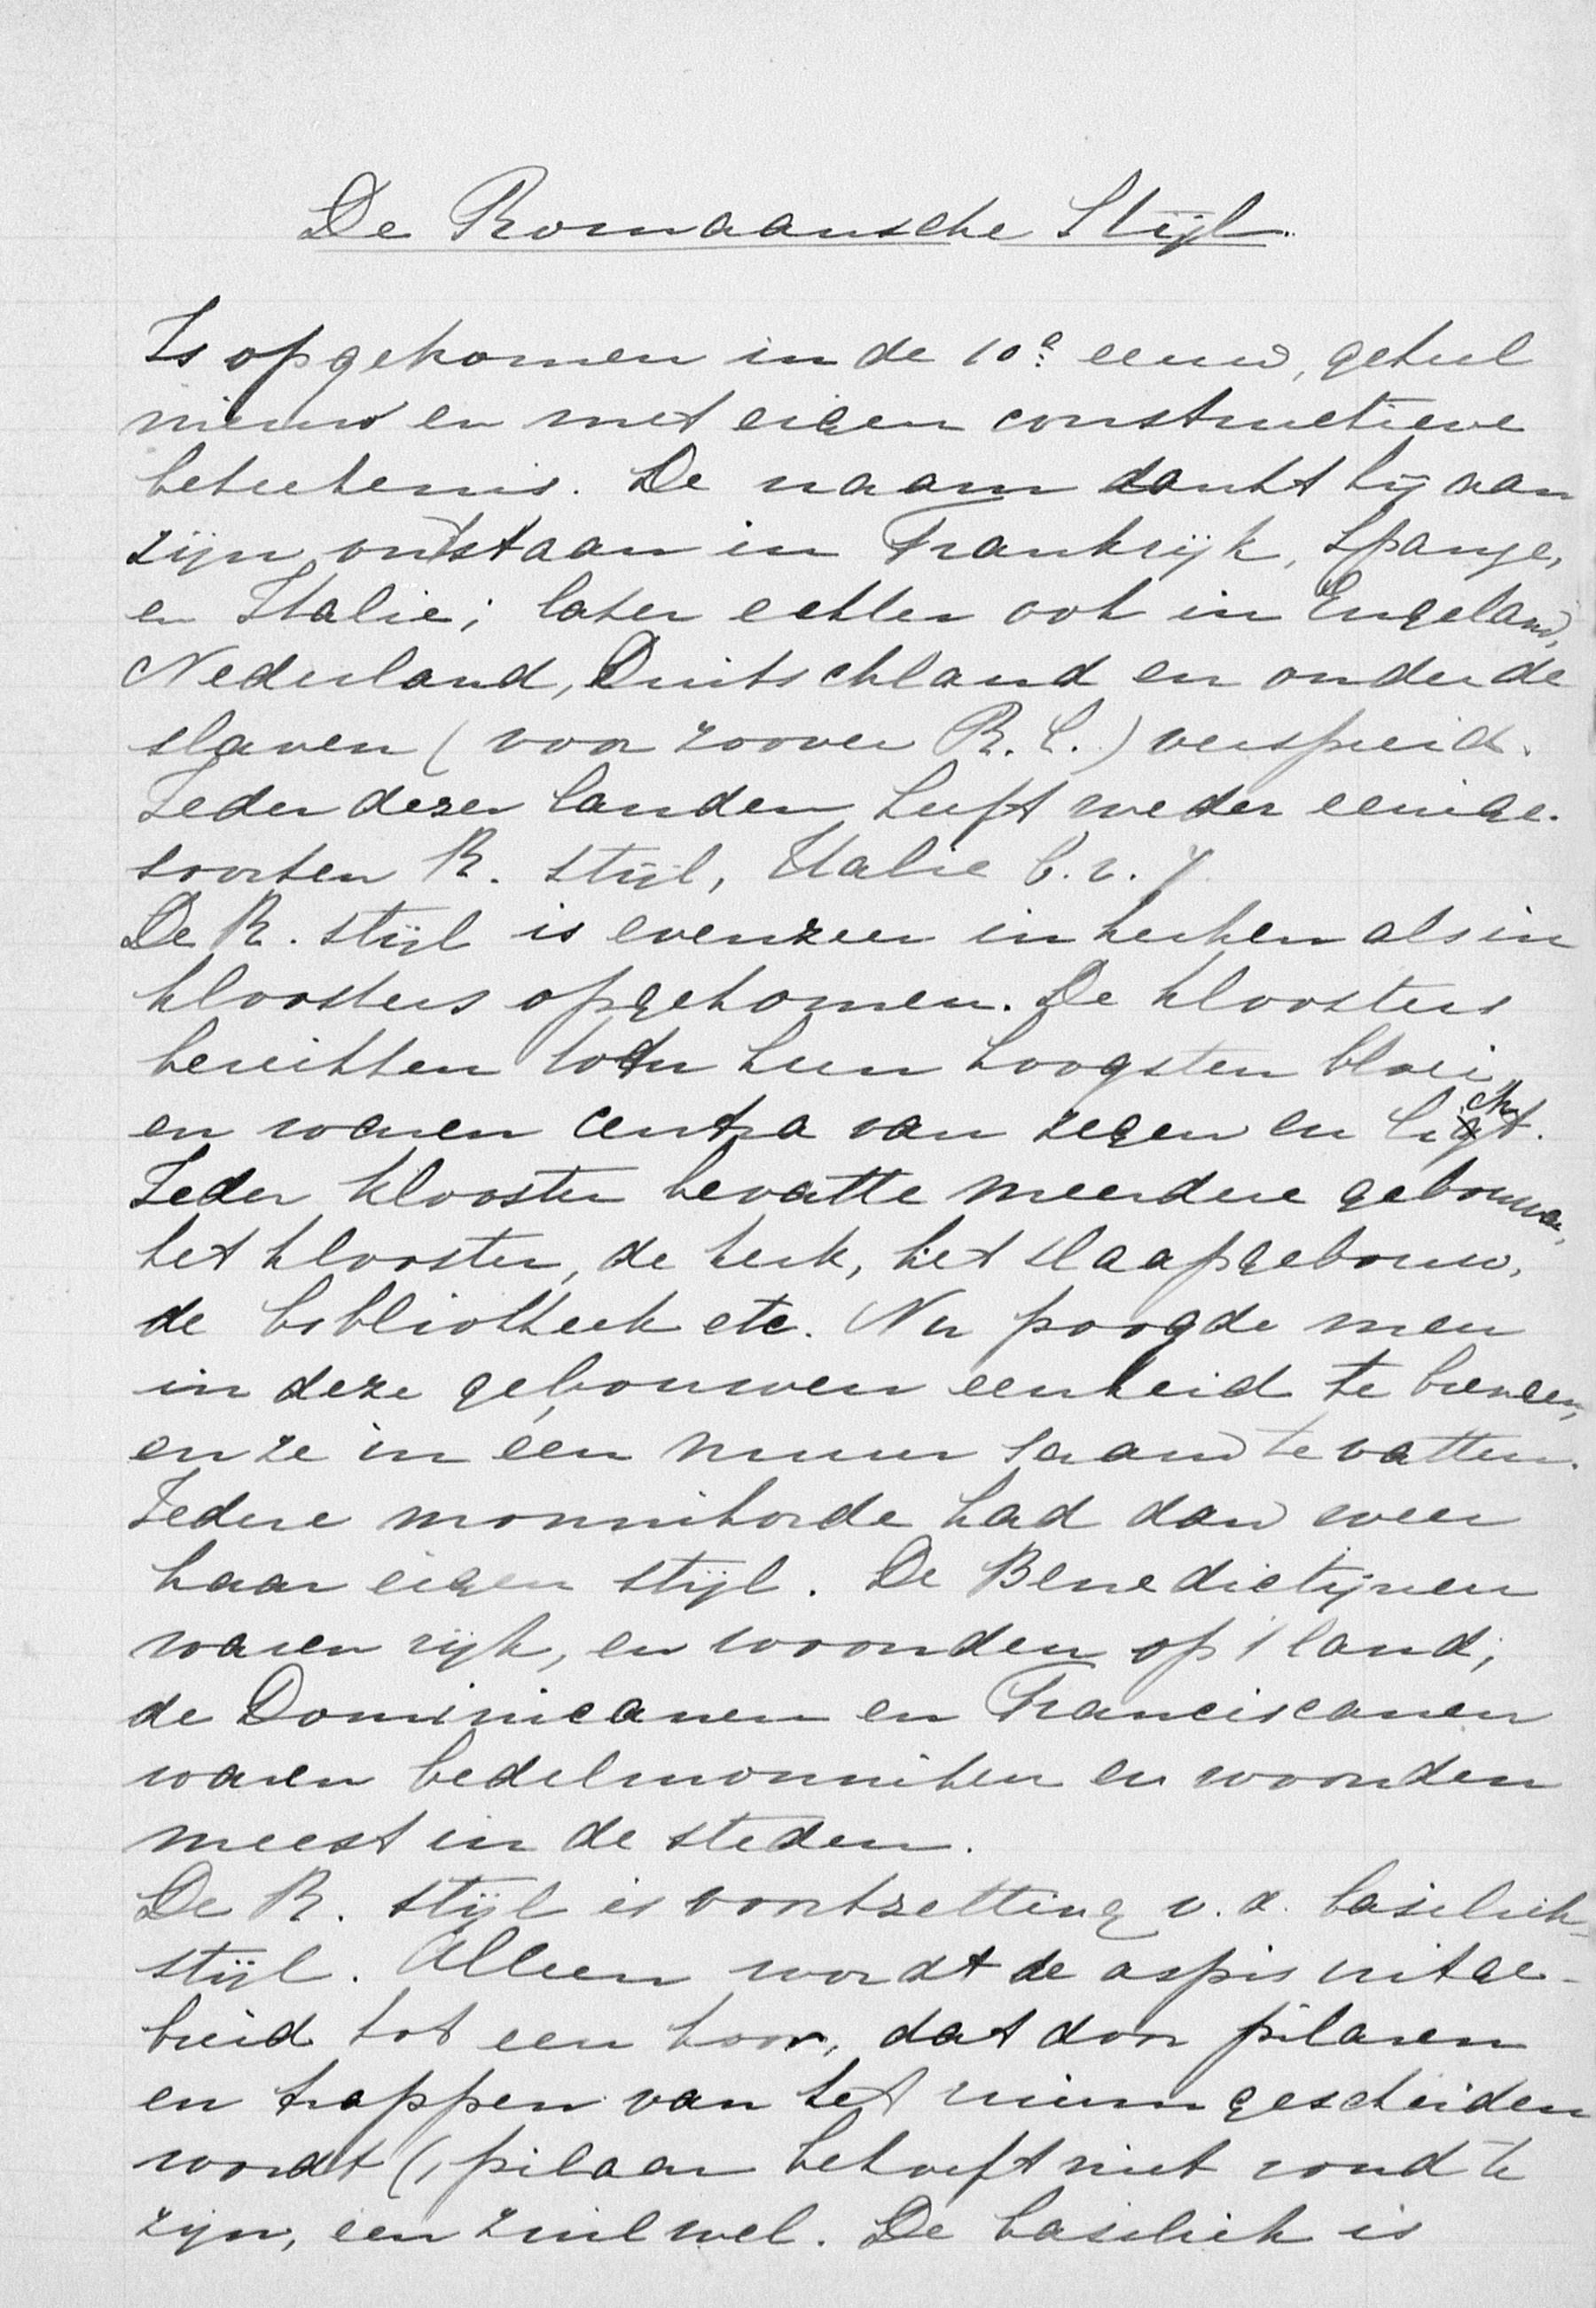 De Romaansche Stijl.
Is opgekomen in de 10e eeuw, geheel
nieuw en met eigen constructieve
beteekenis. De naam dankt hij aan
zijn ontstaan in Frankrijk, Spanje,
en Italie; later echter ook in Engeland,
Nederland, Duitschland en onder de
slaven (voor zoover R. C.) verspreid.
Ieder dezer landen heeft weder eenige
soorten R. stijl, Italie b.v. 7.
De R. stijl is evenzeer in kerken als in
kloosters opgekomen. De kloosters
bereikten toen hun hoogsten bloei,
en waren centra van zegen en licht.
Ieder klooster bevatte meerdere gebouwen,
het klooster, de kerk, het slaapgebouw,
de bibliotheek etc. Nu poogde men
in deze gebouwen eenheid te brengen,
en ze in een muur saam te vatten.
Iedere monnikorde had dan weer
haar eigen stijl. De Benedictijnen
waren rijk, en woonden op 't land;
de Dominicanen en Franciscanen
waren bedelmonniken en woonden
meest in de steden.
De R. stijl is voortzetting v. d. basiliek-
stijl. Alleen wordt de aspis uitge-
breid tot een koor, dat door pilaren
en trappen van het ruim gescheiden
wordt (, pilaar behoeft niet rond te
zijn, een zuil wel. De basiliek is